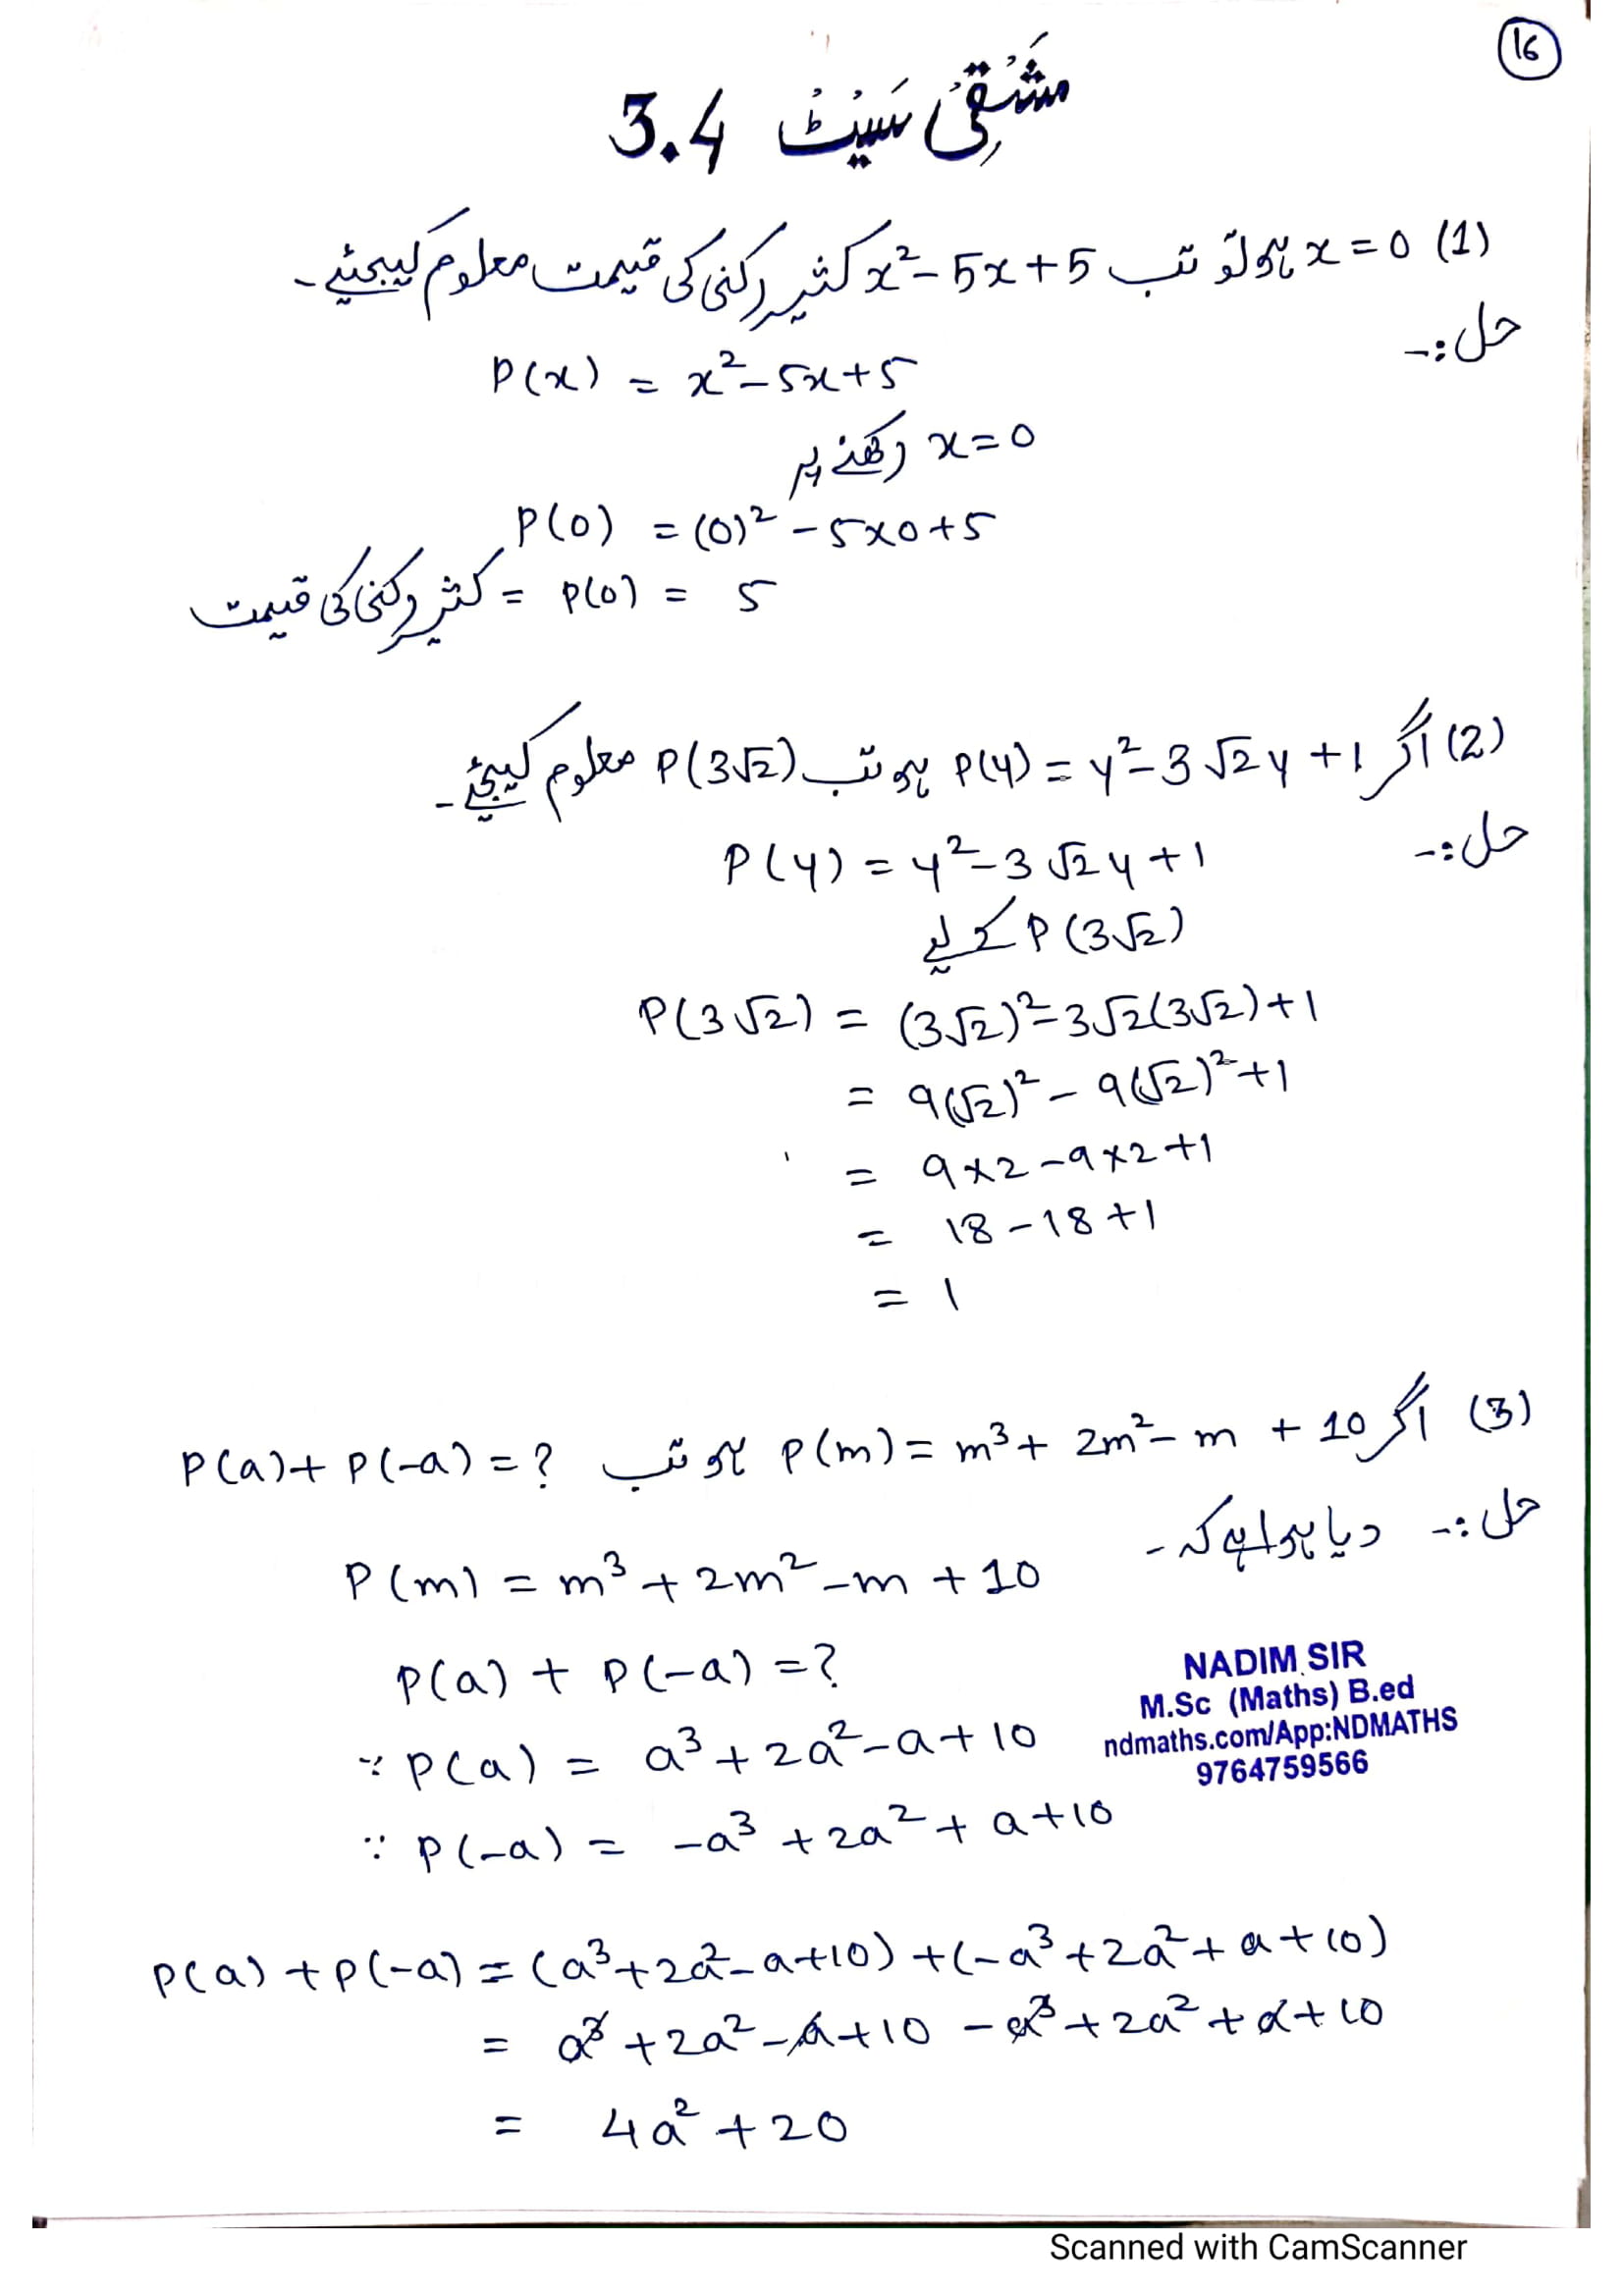 16
مشقی سیٹ 3.4
(1) x = 0 ہو تو تب x² - 5x + 5 کثیر رکنی کی قیمت معلوم کیجئیے۔
حل :-
P(x) = x² - 5x + 5
x = 0 رکھنے پر
P(0) = (0)² - 5×0 + 5
کثیر رکنی کی قیمت = P(0) = 5
(2) اگر P(y) = y² - 3√2y + 1 ہو تب P(3√2) معلوم کیجئے۔
حل :-
P(y) = y² - 3√2y + 1
P(3√2) کے لیے
P(3√2) = (3√2)² - 3√2(3√2) + 1
= 9(√2)² - 9(√2)² + 1
= 9×2 - 9×2 + 1
= 18 - 18 + 1
= 1
(3) اگر P(m) = m³ + 2m² - m + 10 ہو تب P(a) + P(-a) = ?
حل :- دیا ہوا ہے کہ -
P(m) = m³ + 2m² - m + 10
P(a) + P(-a) = ?
∵ P(a) = a³ + 2a² - a + 10
∵ P(-a) = -a³ + 2a² + a + 10
NADIM SIR
M.Sc (Maths) B.ed
ndmaths.com/App:NDMATHS
9764759566
P(a) + P(-a) = (a³ + 2a² - a + 10) + (-a³ + 2a² + a + 10)
= a³ + 2a² - a + 10 - a³ + 2a² + a + 10
= 4a² + 20
Scanned with CamScanner